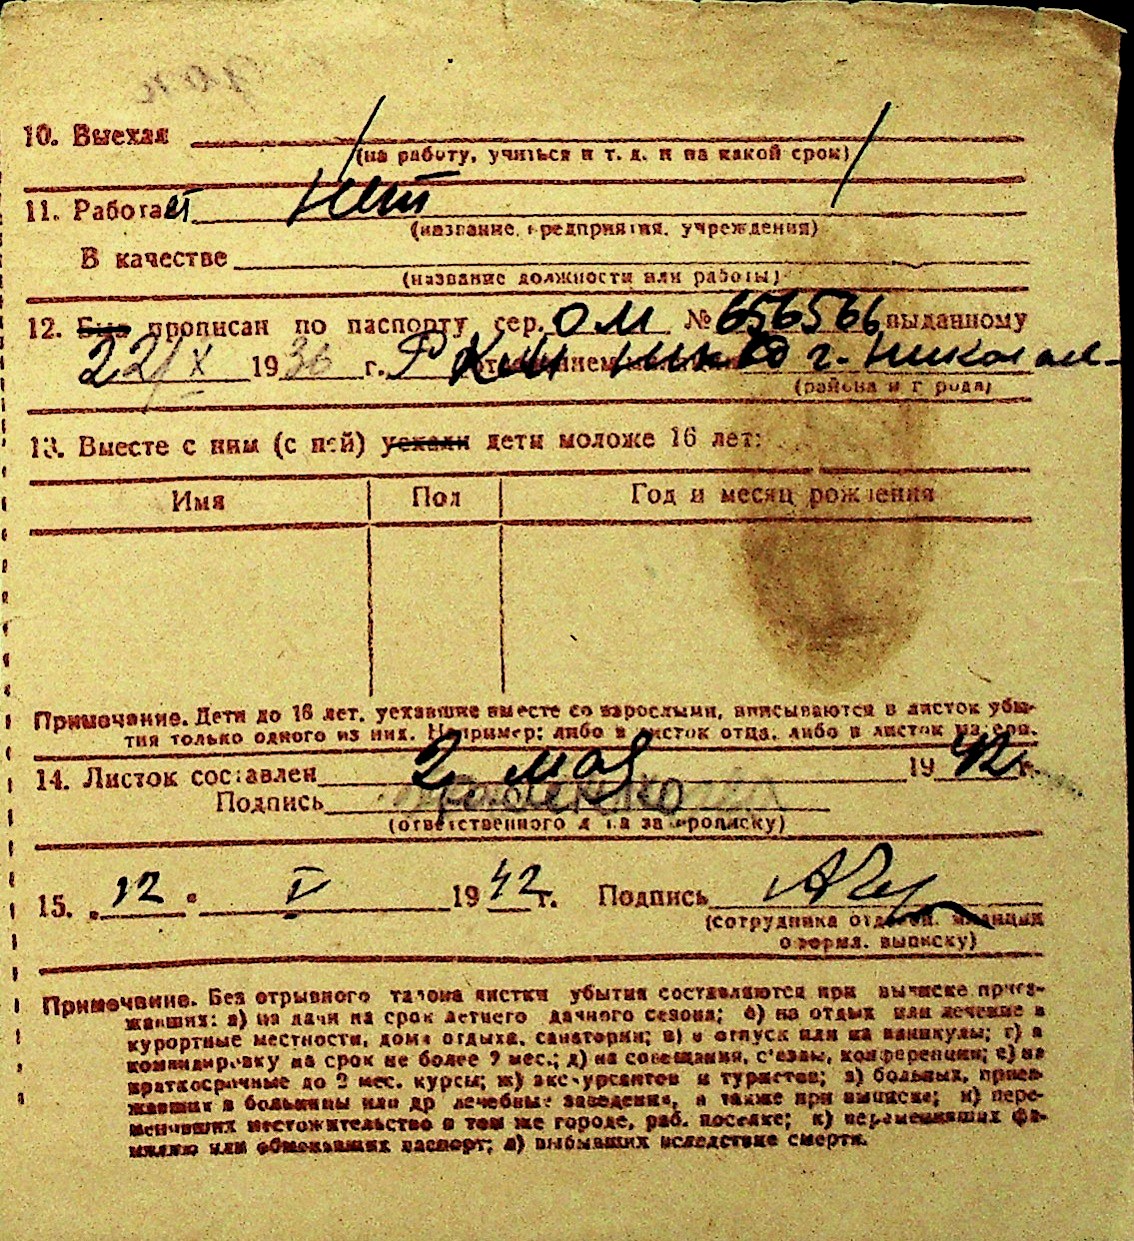 10. Выехал
(на работу, учиться и т. д. и на какой срок)
11. Работает нет
(название предприятия, учреждения)
В качестве
(название должности или работы)
12. Был прописан по паспорту сер. ОМ № 656566 выданному
22/X 1936 г. РКМ г. Никола
(района и города)
13. Вместе с ним (с ней) уехали дети моложе 16 лет:
Имя Пол Год и месяц рождения
Примечание. Дети до 16 лет, уехавшие вместе со взрослыми, вписываются в листок убы-
тия только одного из них. Например: либо в листок отца, либо в листок матери.
14. Листок составлен 2 мая 1942 г.
Подпись
(ответственного лица за прописку)
15. „12" V 1942 г. Подпись
(сотрудника отделен. милиции
оформл. выписку)
Примечание. Без отрывного талона листки убытия составляются при выписке приез-
жавших: а) на дачи на срок летнего дачного сезона; б) на отдых или лечение в
курортные местности, дома отдыха, санатории; в) в отпуск или на каникулы; г) в
командировку на срок не более 2 мес.; д) на совещания, съезды, конференции; е) на
краткосрочные до 2 мес. курсы; ж) экскурсантов и туристов; з) больных, приез-
жавших в больницы или др лечебные заведения, а также при выписке; и) пере-
менивших местожительство в том же городе, раб. поселке; к) переменивших фа-
милию или обменявших паспорт; л) выбывших вследствие смерти.